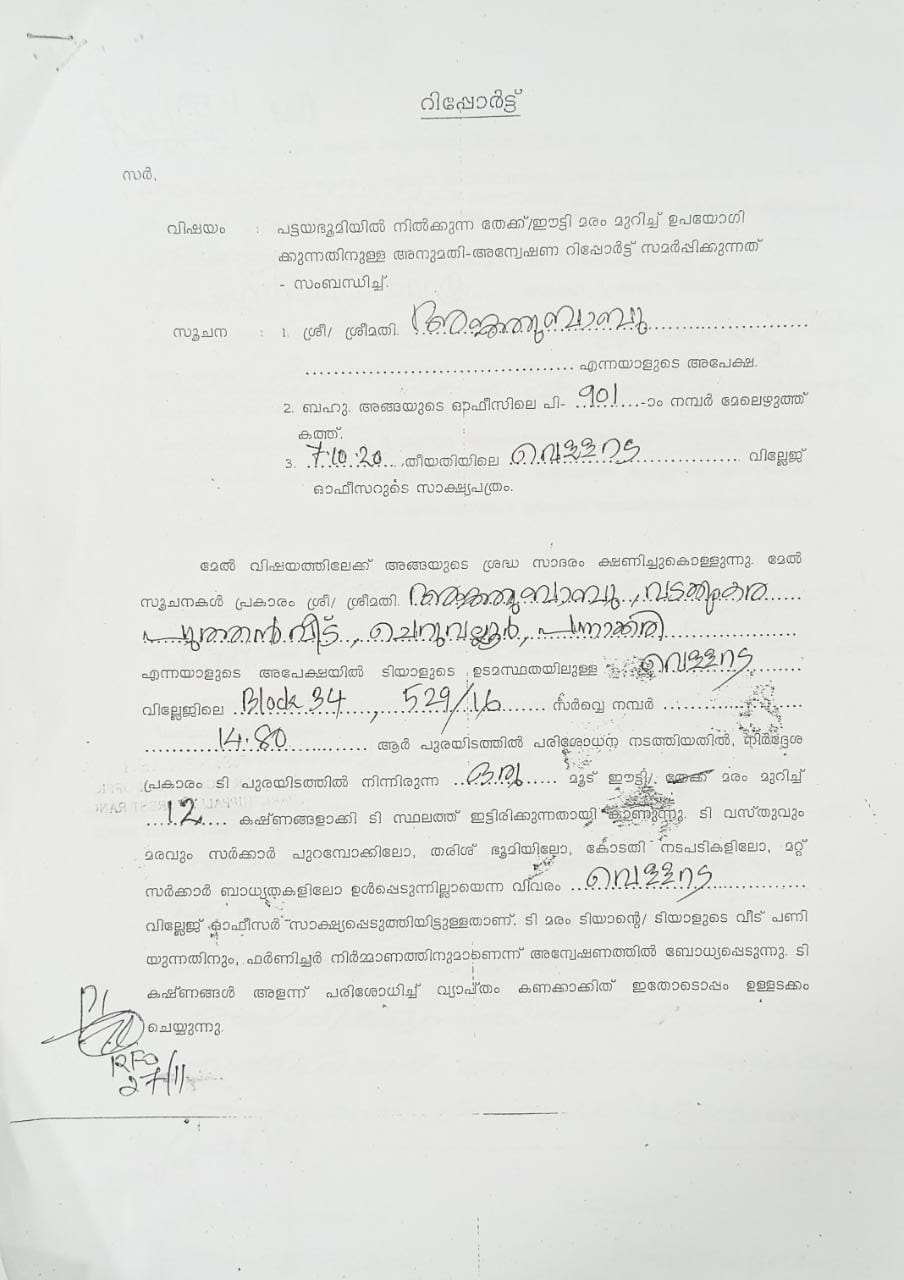 റിപ്പോർട്ട്
സർ,
വിഷയം : പട്ടയഭൂമിയിൽ നിൽക്കുന്ന തേക്ക്/ഈട്ടി മരം മുറിച്ച് ഉപയോഗി
ക്കുന്നതിനുള്ള അനുമതി-അന്വേഷണ റിപ്പോർട്ട് സമർപ്പിക്കുന്നത്
- സംബന്ധിച്ച്.
സൂചന : 1. ശ്രീ/ ശ്രീമതി.
എന്നയാളുടെ അപേക്ഷ.
2. ബഹു. അങ്ങയുടെ ഓഫീസിലെ പി- 901 -ാം നമ്പർ മേലെഴുത്ത്
കത്ത്.
3. 7.10.20 തീയതിയിലെ വെള്ളറട വില്ലേജ്
ഓഫീസറുടെ സാക്ഷ്യപത്രം.
മേൽ വിഷയത്തിലേക്ക് അങ്ങയുടെ ശ്രദ്ധ സാദരം ക്ഷണിച്ചുകൊള്ളുന്നു. മേൽ
സൂചനകൾ പ്രകാരം ശ്രീ/ ശ്രീമതി.
പുത്തൻ വീട്, ചെറുവല്ലൂർ,
എന്നയാളുടെ അപേക്ഷയിൽ ടിയാളുടെ ഉടമസ്ഥതയിലുള്ള വെള്ളറട
വില്ലേജിലെ Block 34, 529/16 സർവ്വെ നമ്പർ
14.80 ആർ പുരയിടത്തിൽ പരിശോധന നടത്തിയതിൽ, നിർദ്ദേശ
പ്രകാരം ടി പുരയിടത്തിൽ നിന്നിരുന്ന ഒരു മൂട് ഈട്ടി/ തേക്ക് മരം മുറിച്ച്
12 കഷ്ണങ്ങളാക്കി ടി സ്ഥലത്ത് ഇട്ടിരിക്കുന്നതായി കാണുന്നു. ടി വസ്തുവും
മരവും സർക്കാർ പുറമ്പോക്കിലോ, തരിശ് ഭൂമിയിലോ, കോടതി നടപടികളിലോ, മറ്റ്
സർക്കാർ ബാധ്യതകളിലോ ഉൾപ്പെടുന്നില്ലായെന്ന വിവരം വെള്ളറട
വില്ലേജ് ഓഫീസർ സാക്ഷ്യപ്പെടുത്തിയിട്ടുള്ളതാണ്. ടി മരം ടിയാന്റെ/ ടിയാളുടെ വീട് പണി
യുന്നതിനും, ഫർണിച്ചർ നിർമ്മാണത്തിനുമാണെന്ന് അന്വേഷണത്തിൽ ബോധ്യപ്പെടുന്നു. ടി
കഷ്ണങ്ങൾ അളന്ന് പരിശോധിച്ച് വ്യാപ്തം കണക്കാക്കിത് ഇതോടൊപ്പം ഉള്ളടക്കം
ചെയ്യുന്നു.
RFO
27/11